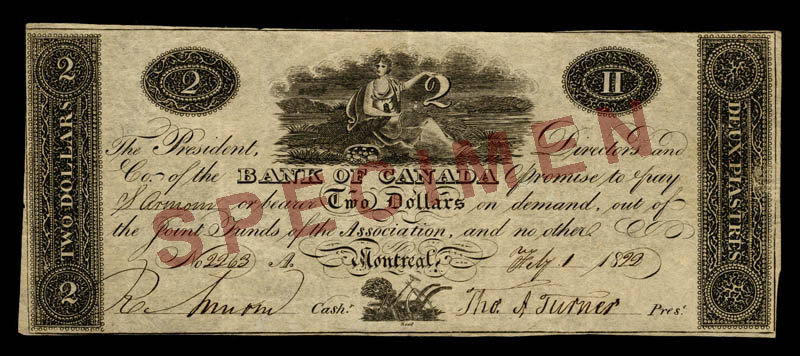 2 II
2
The President, Directors and
Co. of the BANK OF CANADA promise to pay
or bearer Two Dollars on demand, out of
the Joint Funds of the Association, and no other
No 2263 A Montreal, Feby 1 1822
Cashr. Tho. A Turner Prest.
2
TWO DOLLARS
2
DEUX PIASTRES
SPECIMEN